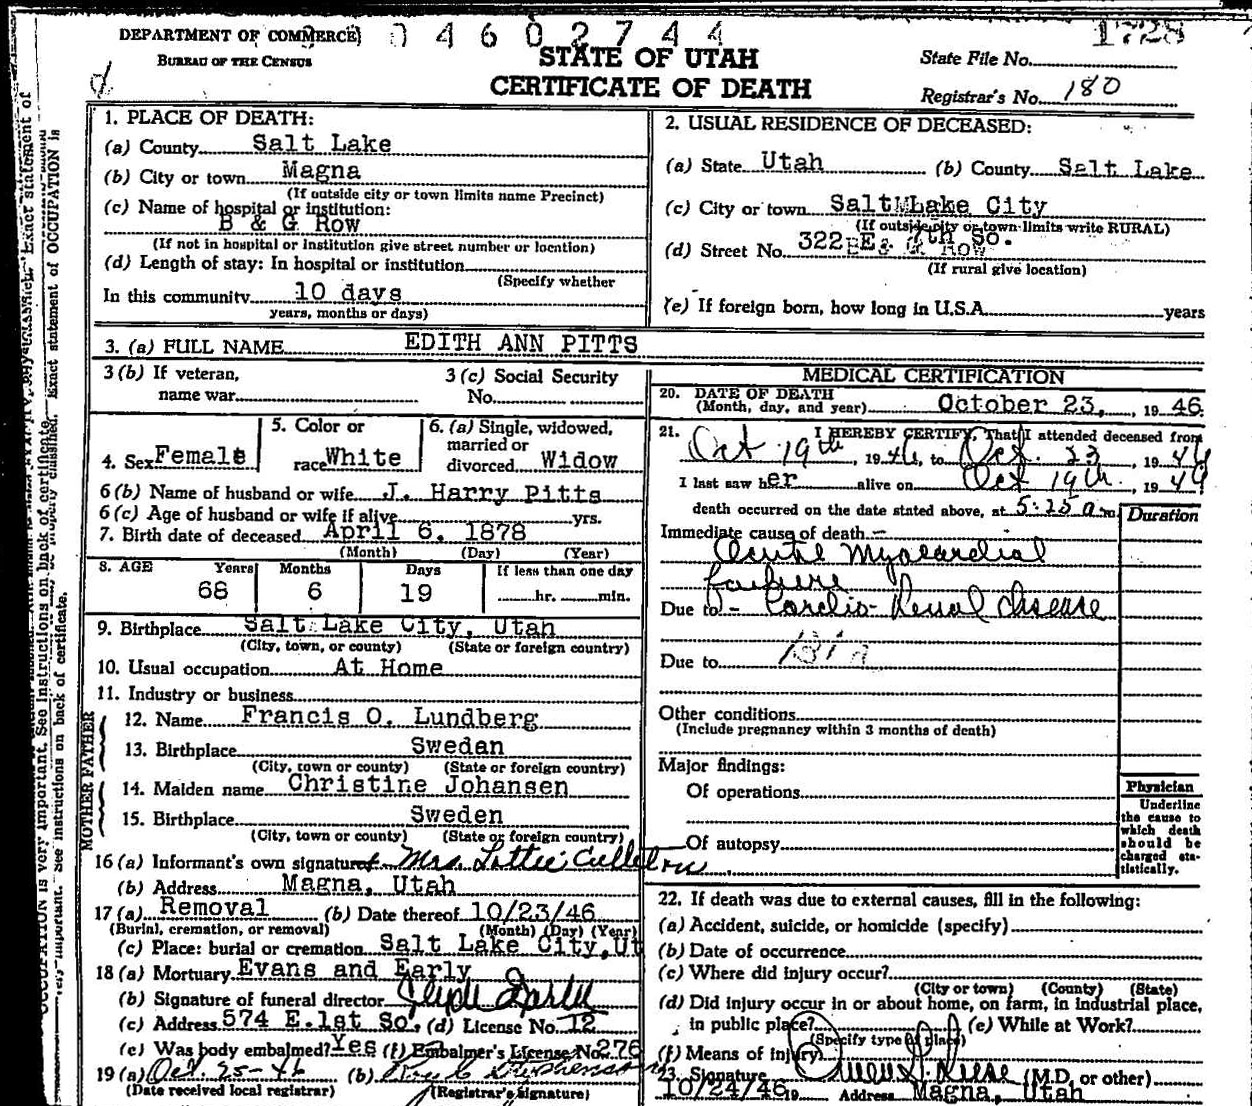 DEPARTMENT OF COMMERCE
04602744
1728
BUREAU OF THE CENSUS
STATE OF UTAH
CERTIFICATE OF DEATH
State File No.
Registrar's No. 180
1. PLACE OF DEATH:
(a) County Salt Lake
(b) City or town Magna
(If outside city or town limits name Precinct)
(c) Name of hospital or institution:
B & G Row
(If not in hospital or institution give street number or location)
(d) Length of stay: In hospital or institution
(Specify whether
In this community 10 days
years, months or days)
2. USUAL RESIDENCE OF DECEASED:
(a) State Utah (b) County Salt Lake
(c) City or town Salt Lake City
(If outside city or town limits write RURAL)
(d) Street No. 322 E. 7th So.
(If rural give location)
(e) If foreign born, how long in U.S.A. years
3. (a) FULL NAME EDITH ANN PITTS
3 (b) If veteran,
name war
3 (c) Social Security
No.
4. Sex Female
5. Color or
race White
6. (a) Single, widowed,
married or
divorced Widow
6 (b) Name of husband or wife J. Harry Pitts
6 (c) Age of husband or wife if alive yrs.
7. Birth date of deceased April 6, 1878
(Month) (Day) (Year)
8. AGE Years Months Days If less than one day
68 6 19 hr. min.
9. Birthplace Salt Lake City, Utah
(City, town, or county) (State or foreign country)
10. Usual occupation At Home
11. Industry or business
FATHER
12. Name Francis O. Lundberg
13. Birthplace Sweden
(City, town or county) (State or foreign country)
MOTHER
14. Maiden name Christine Johansen
15. Birthplace Sweden
(City, town or county) (State or foreign country)
16 (a) Informant's own signature Mrs. Lottie
(b) Address Magna, Utah
17 (a) Removal (b) Date thereof 10/23/46
(Burial, cremation, or removal) (Month) (Day) (Year)
(c) Place: burial or cremation Salt Lake City, Ut
18 (a) Mortuary Evans and Early
(b) Signature of funeral director
(c) Address 574 E. 1st So. (d) License No. 12
(e) Was body embalmed? Yes (f) Embalmer's License No. 276
19 (a) Oct. 25-46 (b)
(Date received local registrar) (Registrar's signature)
MEDICAL CERTIFICATION
20. DATE OF DEATH
(Month, day, and year) October 23, , 19 46
21. I HEREBY CERTIFY, That I attended deceased from
Oct 19th , 19 46, to Oct. 23 , 19 46
I last saw her alive on Oct 19th , 19 46
death occurred on the date stated above, at 5:25 a m.
Duration
Immediate cause of death
Acute Myocardial
failure
Due to - Cardio-Renal disease
Due to 131a
Other conditions
(Include pregnancy within 3 months of death)
Major findings:
Of operations
Of autopsy
Physician
Underline
the cause to
which death
should be
charged sta-
tistically.
22. If death was due to external causes, fill in the following:
(a) Accident, suicide, or homicide (specify)
(b) Date of occurrence
(c) Where did injury occur?
(City or town) (County) (State)
(d) Did injury occur in or about home, on farm, in industrial place,
in public place? (e) While at Work?
(Specify type of place)
(f) Means of injury
23. Signature (M.D. or other)
10/24/46 19 Address Magna, Utah